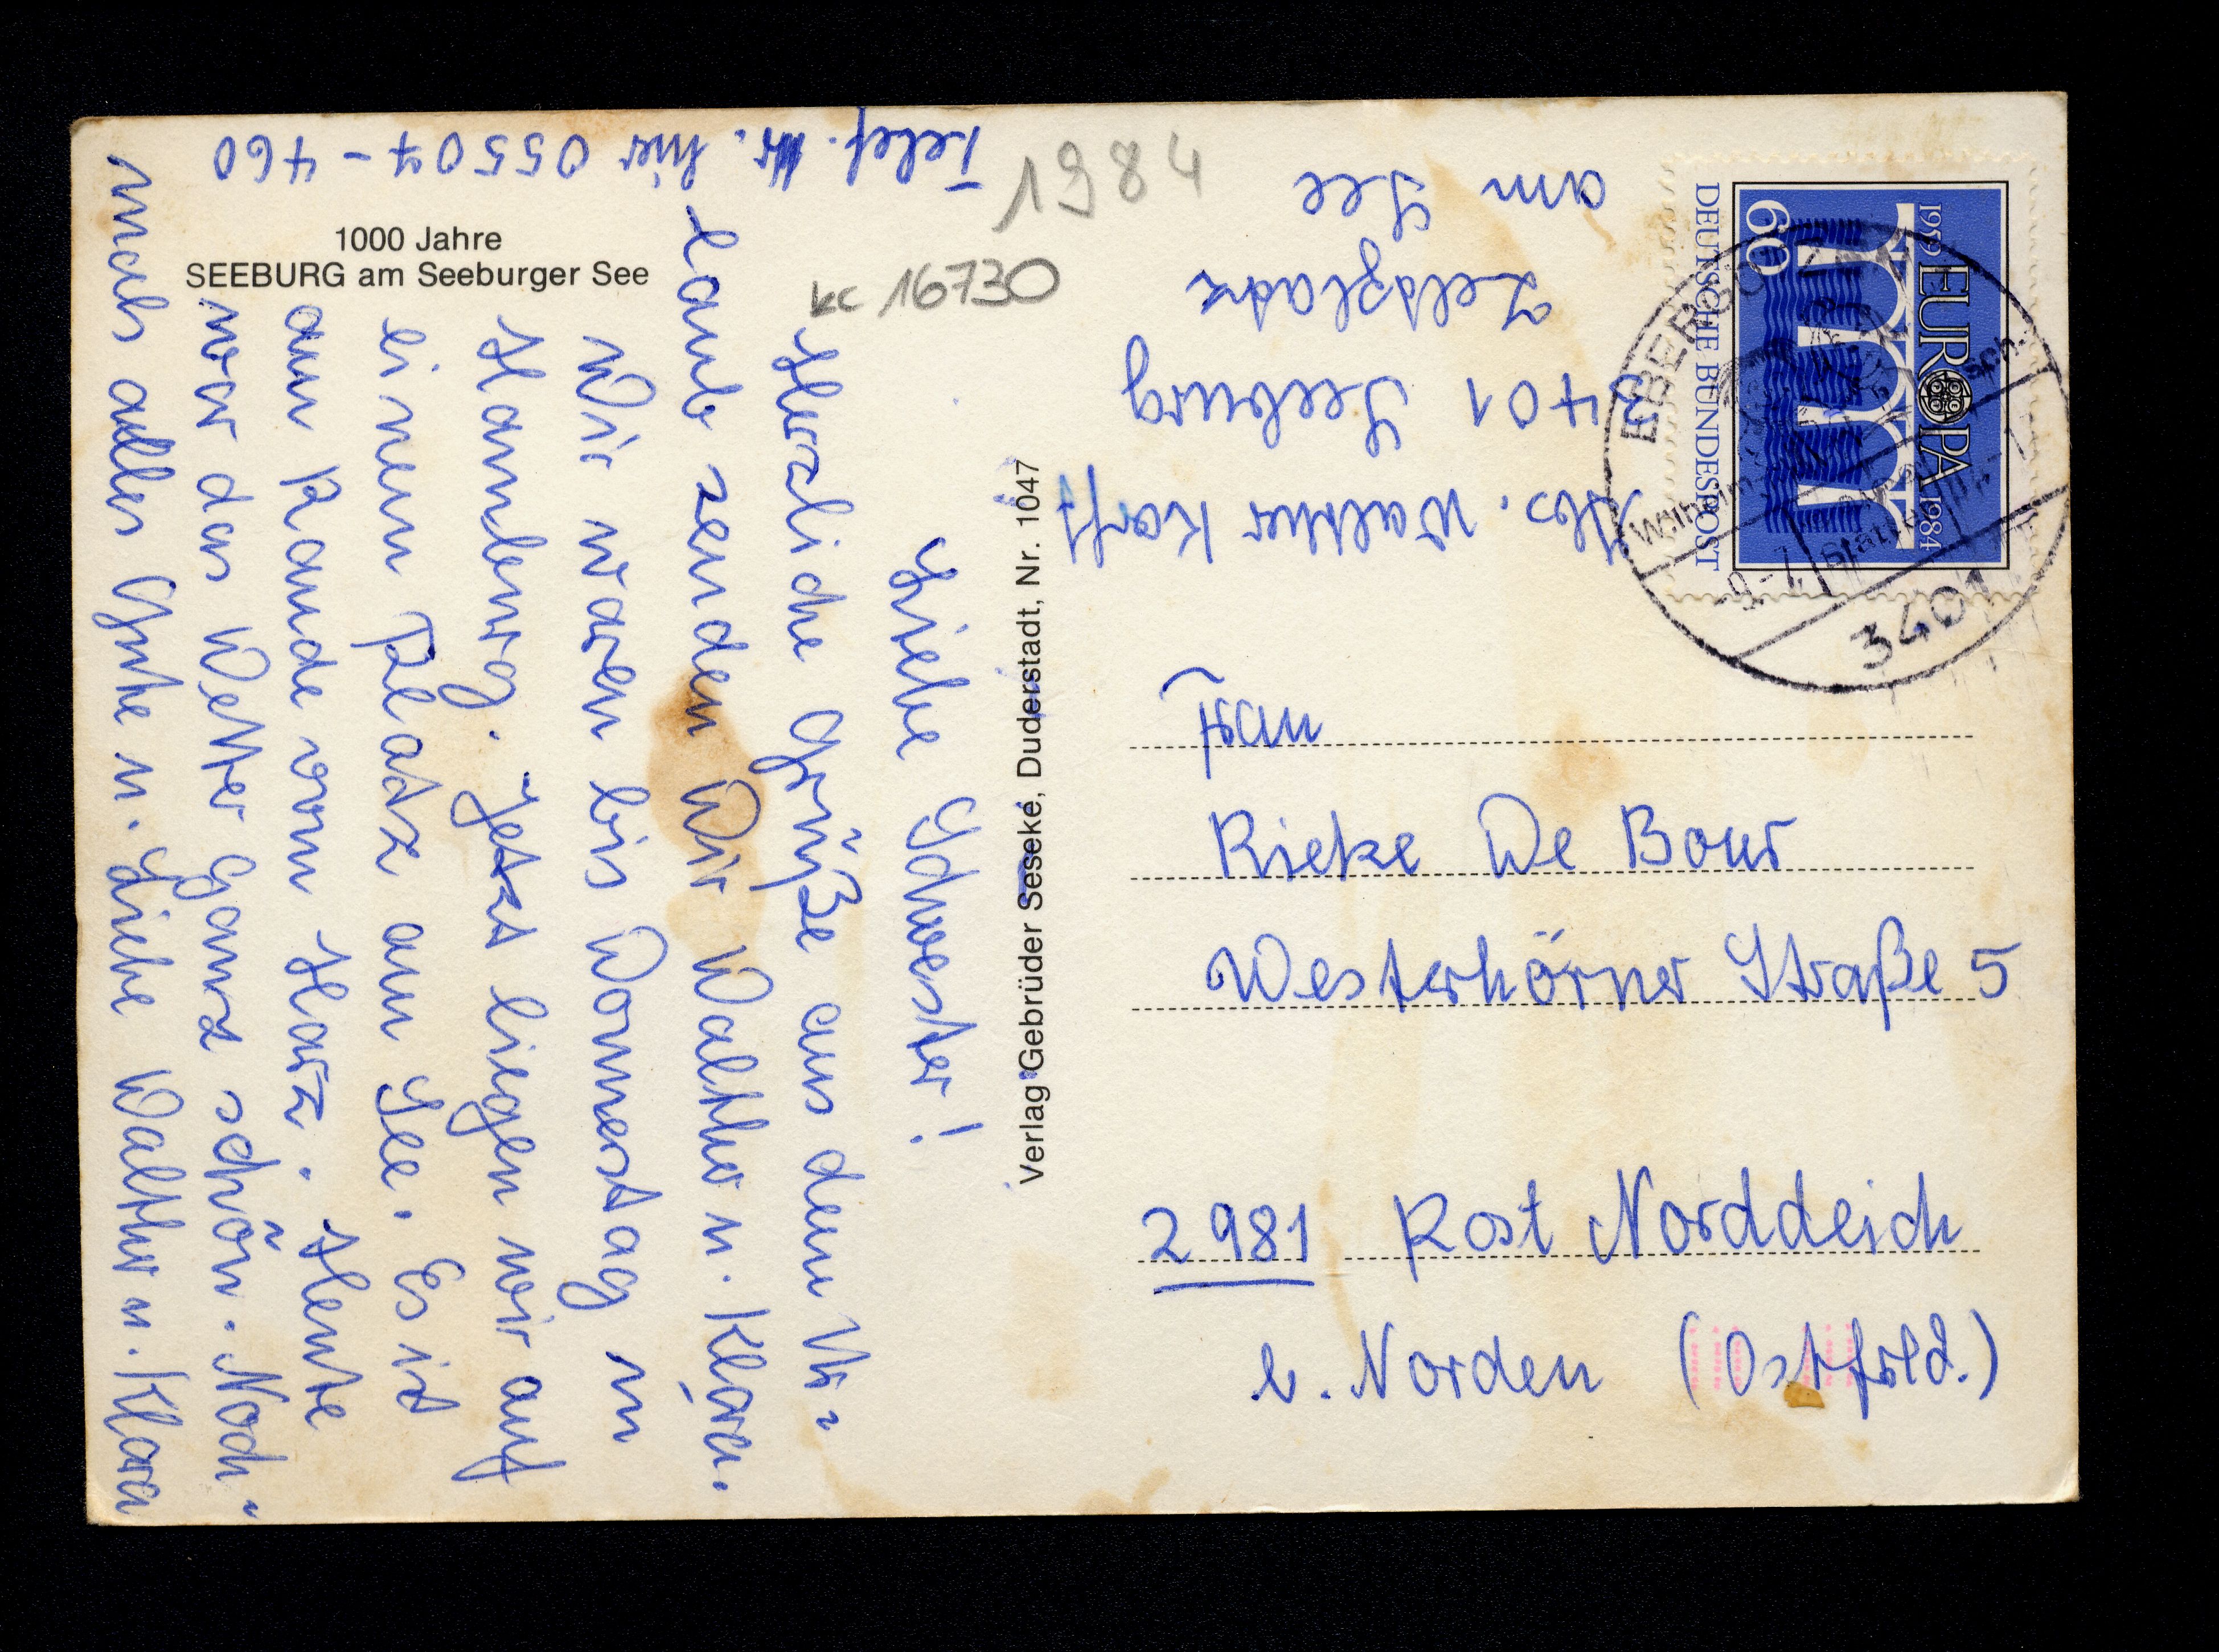 1000 Jahre
SEEBURG am Seeburger See
Telef. Nr. hier 05507-460
1984
KC 16730
Liebe Schwester!
Herzliche Grüße aus dem Ur-
laub senden Dir Walther u. Klara.
Wir waren bis Donnerstag in
Hamburg. Jetzt liegen wir auf
einem Platz am See. Es ist
am Rande vom Harz. Heute
war das Wetter ganz schön. Noch-
mals alles Gute u. Liebe Walther u. Klara
Verlag Gebrüder Seseke, Duderstadt, Nr. 1047
Abs. Walther Korff
3401 Seeburg
Zeltplatz
am See
DEUTSCHE BUNDESPOST
60
1959 EUROPA 1984
EBERGÖTZEN
Wilhelm-
3401
Frau
Rieke De Bour
Westerhörner Straße 5
2981 Post Norddeich
b. Norden (Ostfrld.)